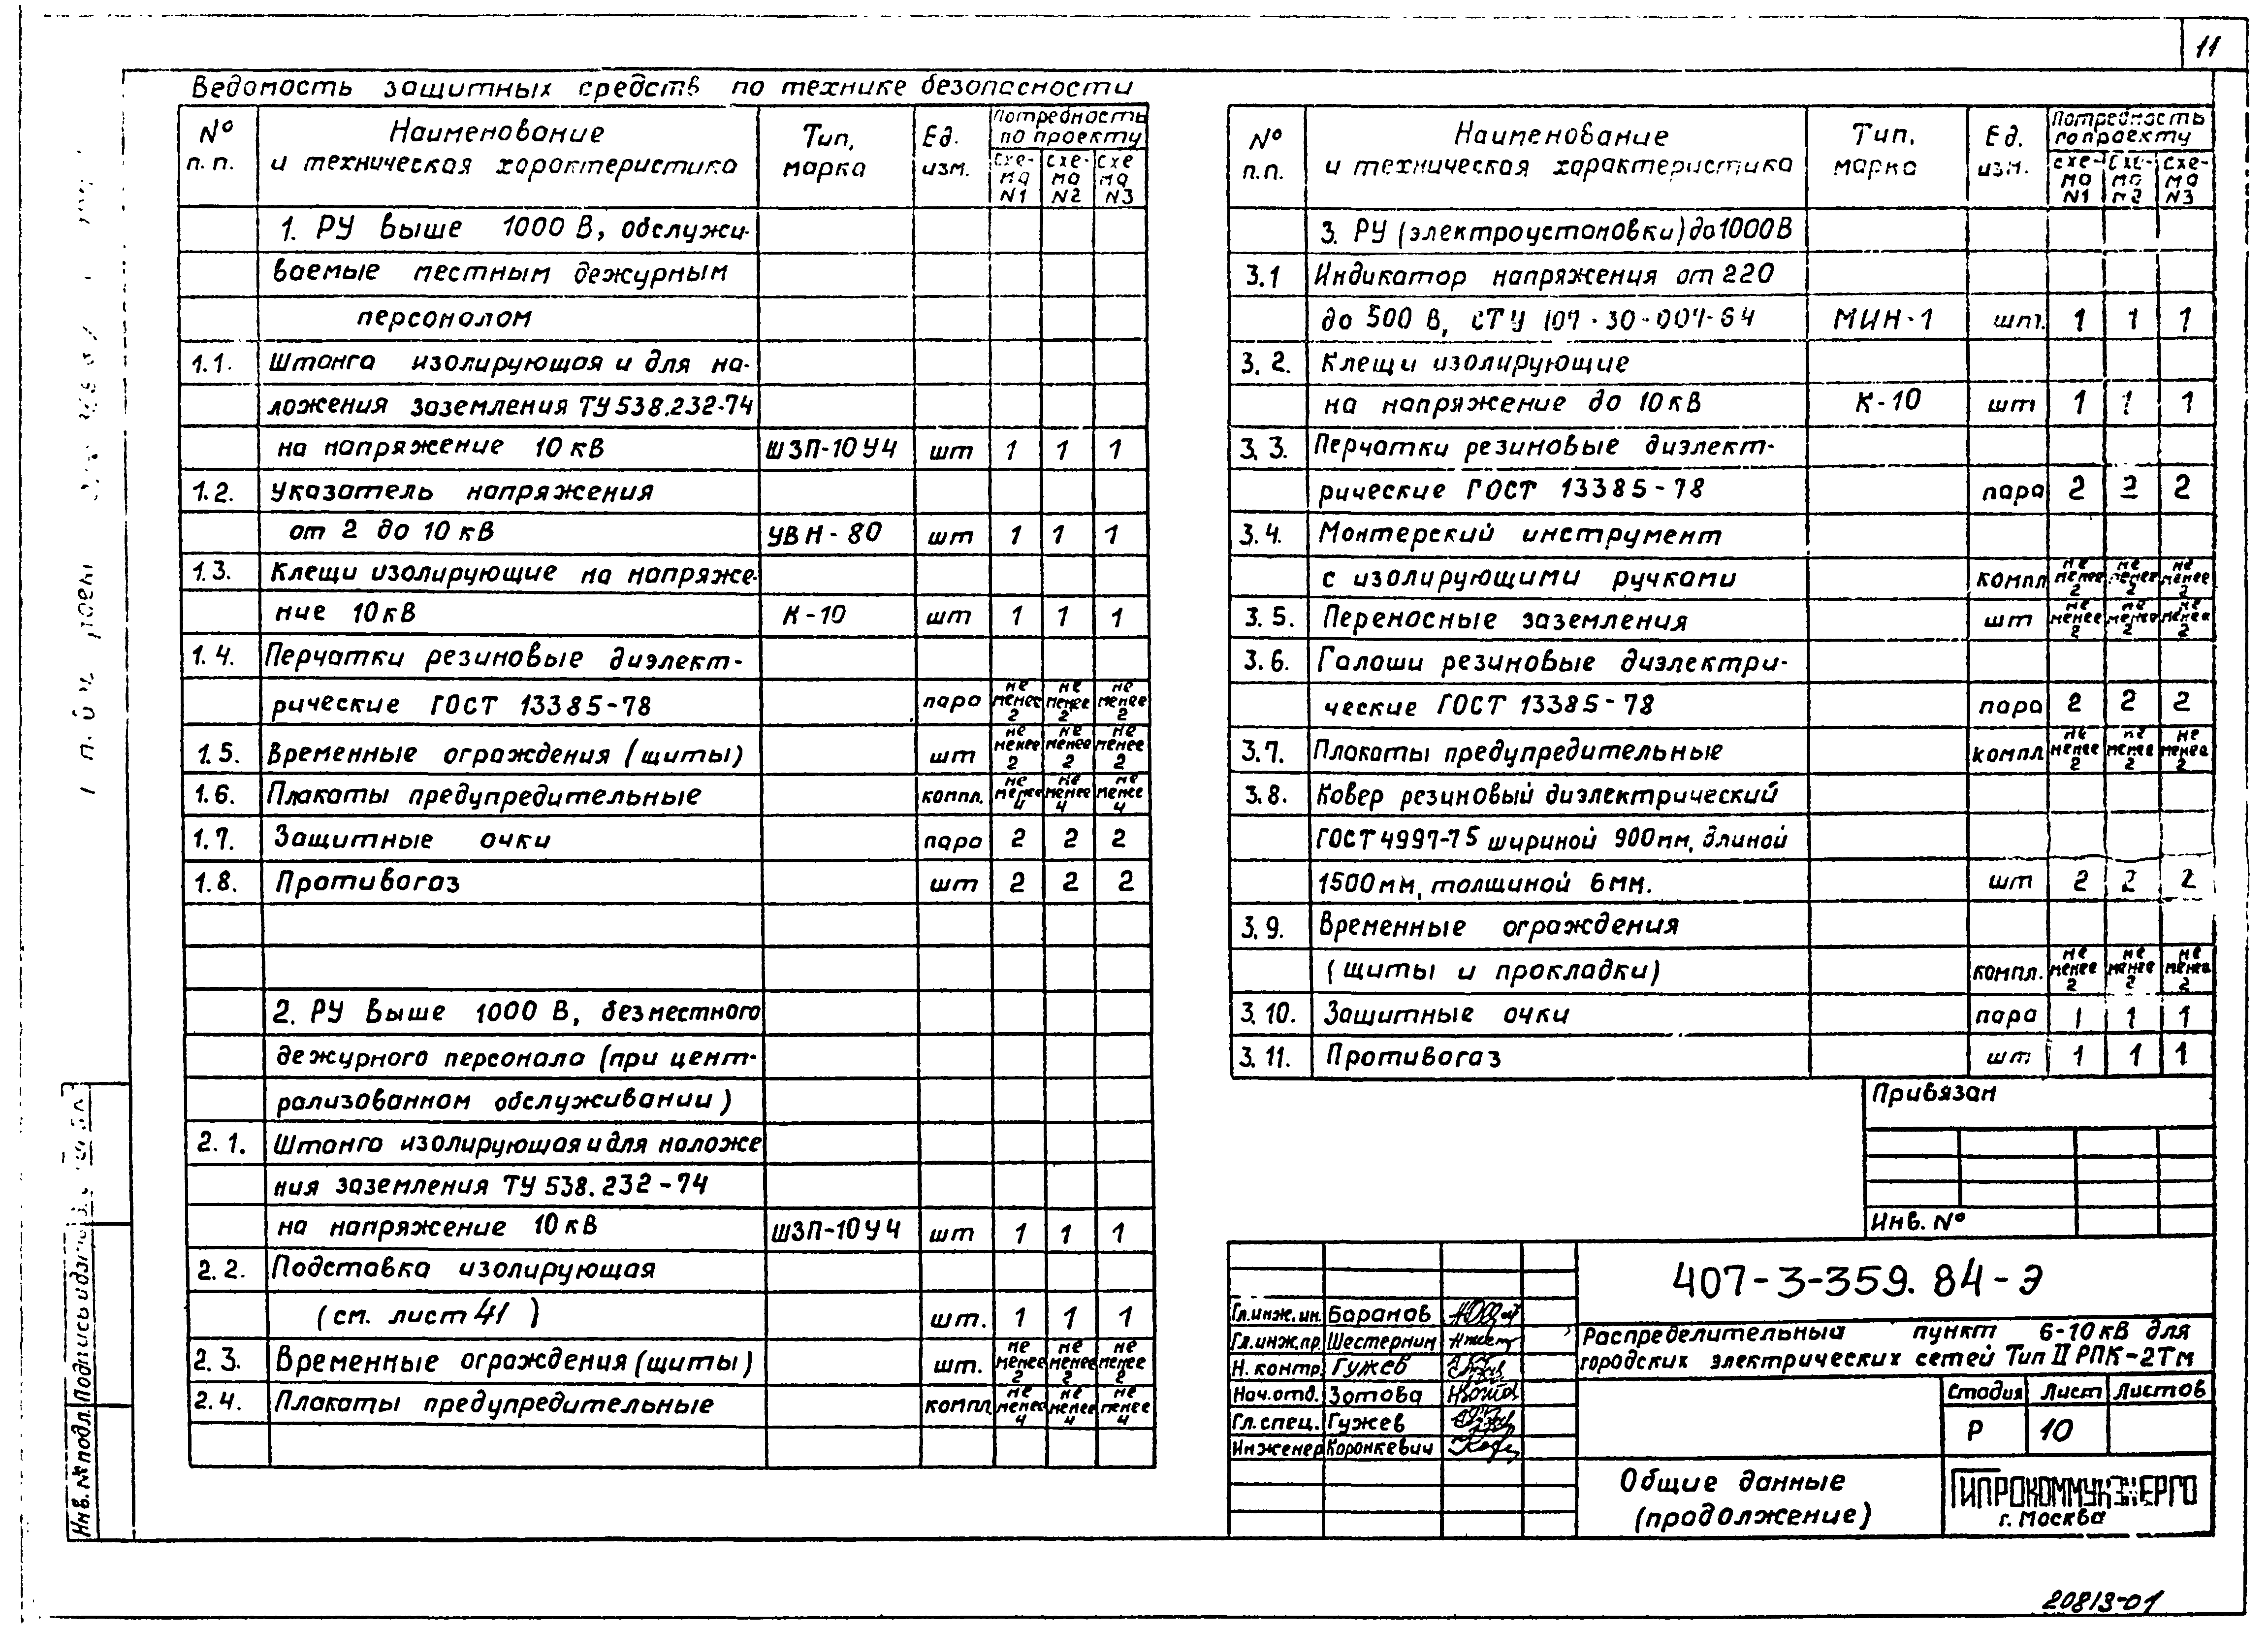 11
Ведомость защитных средств по технике безопасности
№ п.п. Наименование и техническая характеристика Тип, марка Ед. изм. Потребность по проекту схе-ма N1 схе-ма N2 схе ма N3
1. РУ выше 1000 В, обслужи-
ваемые местным дежурным
персоналом
1.1. Штанга изолирующая и для на-
ложения заземления ТУ 538.232-74
на напряжение 10 кВ ШЗП-10У4 шт 1 1 1
1.2. Указатель напряжения
от 2 до 10 кВ УВН-80 шт 1 1 1
1.3. Клещи изолирующие на напряже-
ние 10 кВ К-10 шт 1 1 1
1.4. Перчатки резиновые диэлект-
рические ГОСТ 13385-78 пара не менее 2 не менее 2 не менее 2
1.5. Временные ограждения (щиты) шт не менее 2 не менее 2 не менее 2
1.6. Плакаты предупредительные компл. не менее 4 не менее 4 не менее 4
1.7. Защитные очки пара 2 2 2
1.8. Противогаз шт 2 2 2
2. РУ выше 1000 В, без местного
дежурного персонала (при цент-
рализованном обслуживании)
2.1. Штанга изолирующая и для наложе
ния заземления ТУ 538.232-74
на напряжение 10 кВ ШЗП-10У4 шт 1 1 1
2.2. Подставка изолирующая
(см. лист 41) шт. 1 1 1
2.3. Временные ограждения (щиты) шт. не менее 2 не менее 2 не менее 2
2.4. Плакаты предупредительные компл не менее 4 не менее 4 не менее 4
№ п.п. Наименование и техническая характеристика Тип, марка Ед. изм. Потребность по проекту схе-ма N1 схе-ма N2 схе-ма N3
3. РУ (электроустановки) до 1000 В
3.1 Индикатор напряжения от 220
до 500 В, СТУ 107-30-007-64 МИН-1 шт. 1 1 1
3.2. Клещи изолирующие
на напряжение до 10 кВ К-10 шт 1 1 1
3.3. Перчатки резиновые диэлект-
рические ГОСТ 13385-78 пара 2 2 2
3.4. Монтерский инструмент
с изолирующими ручками компл не менее 2 не менее 2 не менее 2
3.5. Переносные заземления шт не менее 2 не менее 2 не менее 2
3.6. Галоши резиновые диэлектри-
ческие ГОСТ 13385-78 пара 2 2 2
3.7. Плакаты предупредительные компл не менее 2 не менее 2 не менее 2
3.8. Ковер резиновый диэлектрический
ГОСТ 4997-75 шириной 900 мм, длиной
1500 мм, толщиной 6 мм. шт 2 2 2
3.9. Временные ограждения
(щиты и прокладки) компл. не менее 2 не менее 2 не менее 2
3.10. Защитные очки пара 1 1 1
3.11. Противогаз шт 1 1 1
Привязан
Инв. №
407-3-359.84-Э
Гл.инж.ин. Баранов
Гл.инж.пр. Шестернин
Н. контр. Гужев
Нач.отд. Зотова
Гл.спец. Гужев
Инженер Коронкевич
Распределительный пункт 6-10 кВ для
городских электрических сетей Тип II РПК-2Тм
Стадия Лист Листов
Р 10
Общие данные
(продолжение)
ГИПРОКОММУНЭНЕРГО
г. Москва
Инв. № подл. Подпись и дата
20813-01